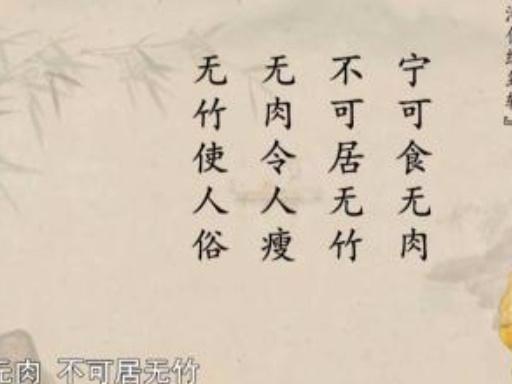 宁可食无肉
不可居无竹
无肉令人瘦
无竹使人俗
无肉 不可居无竹